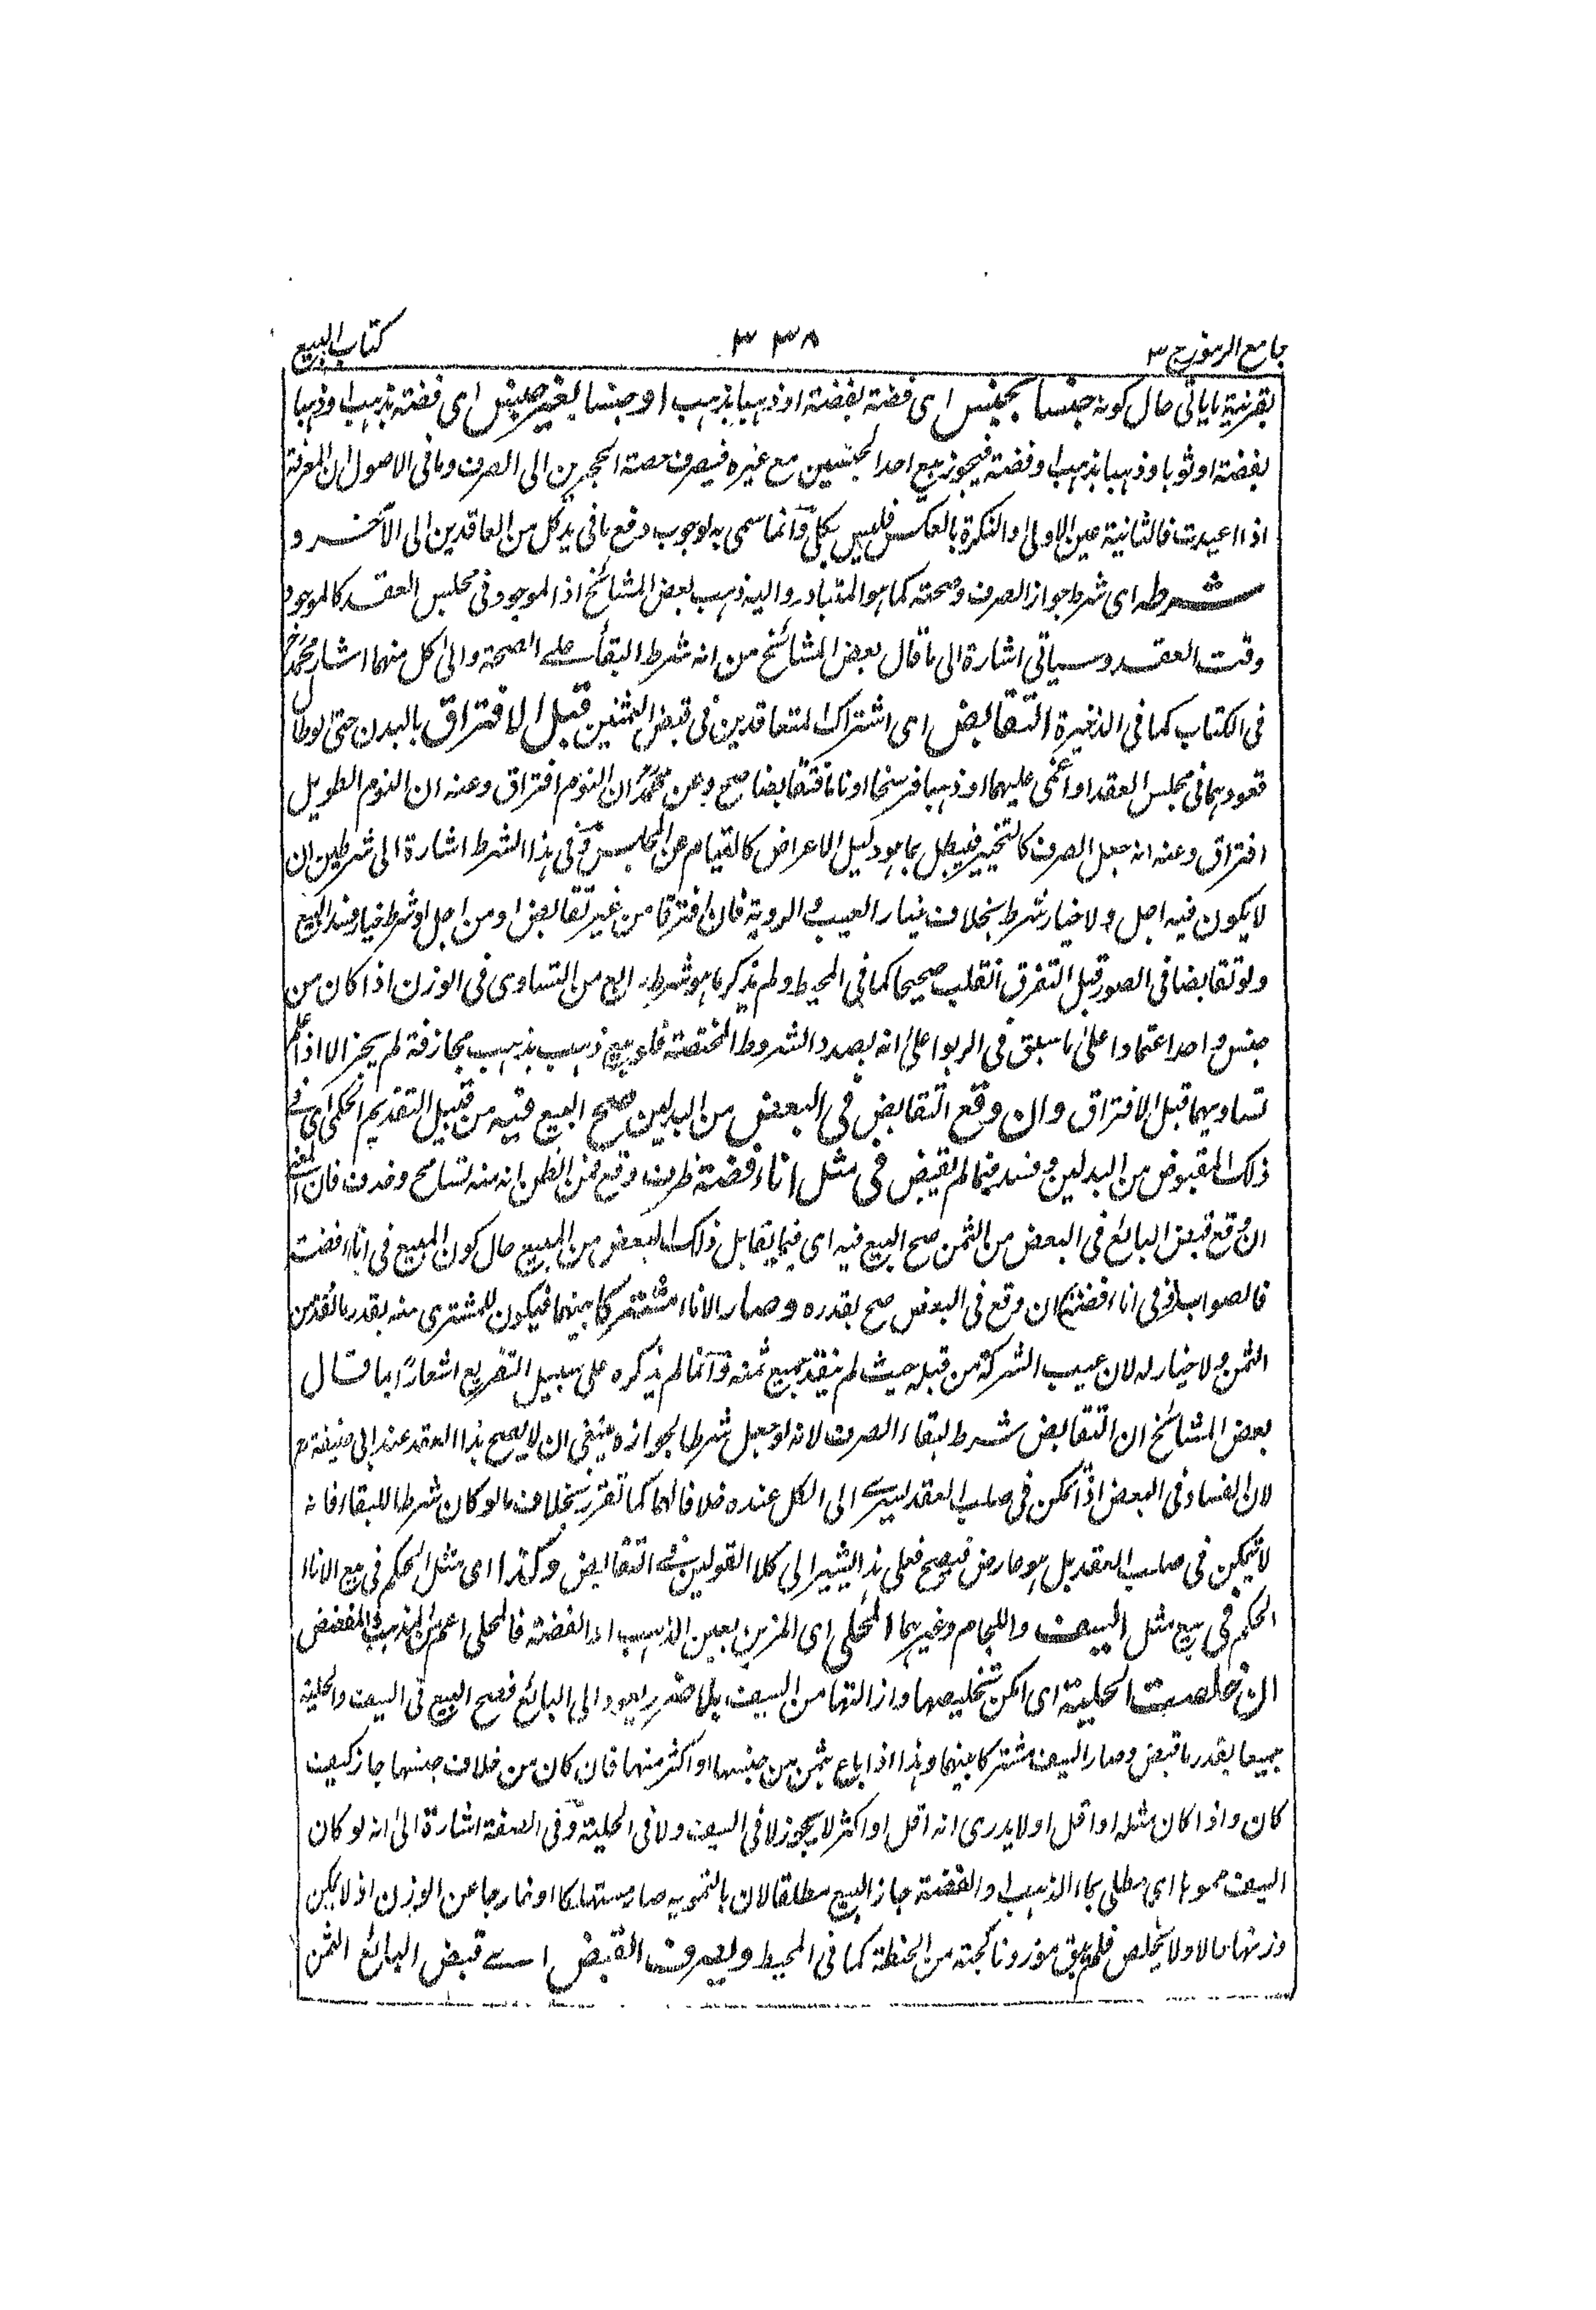 جامع الرموز ج ٣
٣٣٨
كتاب البيع
بقرينة ما ياتى حال كونه جنسا بجنس اى فضة بفضة او ذهبا بذهب او جنسا بغير جنس اى فضة بذهب او ذهبا
بفضة او ثوبا وذهبا بذهب او فضة فيجوز بيع احد الجنسين مع غيره فيصرف حصة الحجرين الى الصرف وما فى الاصول ان المعرفة
اذا اعيدت فالثانية عين الاولى والنكرة بالعكس فليس بكلى وانما سمى به لوجوب دفع ما فى يد كل من العاقدين الى الآخر و
شرطه اى شرط جواز الصرف وصحته كما هو المتبادر واليه ذهب بعض المشائخ اذ الموجود فى مجلس العقد كالموجود
وقت العقد وسياتى اشارة الى ما قال بعض المشائخ من انه شرط البقاء على الصحة والى كل منهما اشار محمد رح
فى الكتاب كما فى الذخيرة التقابض اى اشتراك المتعاقدين فى قبض الثمنين قبل الافتراق بالبدن حتى لو طال
قعودهما فى مجلس العقد او اغمى عليهما او ذهبا فرسخا او ناما فتقابضا صح وعن محمد ان النوم افتراق وعنه ان النوم الطويل
افتراق وعنه انه جعل الصرف كالتخيير فيبطل بما هو دليل الاعراض كالقيام عن المجلس وفى هذا الشرط اشارة الى شرطين ان
لا يكون فيه اجل ولا خيار شرط بخلاف خيار العيب والروية فان افترقا من غير تقابض او من اجل او شرط خيار فسد البيع
ولو تقابضا فى الصور قبل التفرق انقلب صحيحا كما فى المحيط ولم يذكر ما هو شرط رابع من التساوى فى الوزن اذا كان من
جنس واحد اعتمادا على ما سبق فى الربوا على انه بصدد الشروط المختصة فلو بيع ذهب بذهب مجازفة لم يجز الا اذا علم
تساويهما قبل الافتراق وان وقع التقابض فى البعض من البدلين صح البيع فيه من قبيل التقديم الحكمى اى فى
ذلك المقبوض من البدلين وفسد فيما لم يقبض فى مثل اناء فضة ظرف وقع فمن الظن انه منه تسامح وخدف فان المعنى
ان وقع قبض البائع فى البعض من الثمن صح البيع فيه اى فيما يقابل ذلك البعض من المبيع حال كون المبيع فى اناء فضة
فالصواب وفى اناء فضة ان وقع فى البعض صح بقدره وصار الاناء مشتركا بينهما فيكون للمشترى منه بقدر ما نقد من
الثمن ولا خيار له لان عيب الشركة من قبله حيث لم ينقد جميع ثمنه وانما لم يذكره على سبيل التفريع اشعارا بما قال
بعض المشائخ ان التقابض شرط لبقاء الصرف لانه لو جعل شرطا لجوازه ينبغى ان لا يصح هذا العقد عند ابى حنيفة رح
لان الفساد فى البعض اذا تمكن فى صلب العقد يسرى الى الكل عنده خلافا لهما كما تقرر بخلاف ما لو كان شرطا للبقاء فانه
لا يتمكن فى صلب العقد بل هو عارض فيصح فعلى هذا يشير الى كلا القولين فى التقابض وكذا اى مثل الحكم فى بيع الاناء
الحكم فى بيع مثل السيف واللجام وغيرهما المحلى اى المزين بعين الذهب او الفضة فالمحلى اعم من المذهب والمفضض
ان خلصت الحلية اى امكن تخليصها وازالتها من السيف بلا ضرر يعود الى البائع فصح البيع فى السيف والحلية
جميعا بقدر ما قبض وصار السيف مشتركا بينهما وهذا اذا باع بثمن من جنسها او اكثر منها فان كان من خلاف جنسها جاز كيف
كان واذا كان مثله او اقل او لا يدرى انه اقل او اكثر لا يجوز لا فى السيف ولا فى الحلية وفى الصفة اشارة الى انه لو كان
السيف مموها اى مطلى بماء الذهب او الفضة جاز البيع مطلقا لان بالتمويه صار مستهلكا او خارجا عن الوزن اذ لا يمكن
وزنها حالا ولا يتخلص فلم يبق موزونا كحبة من الحنطة كما فى المحيط ويصرف القبض اى قبض البائع الثمن